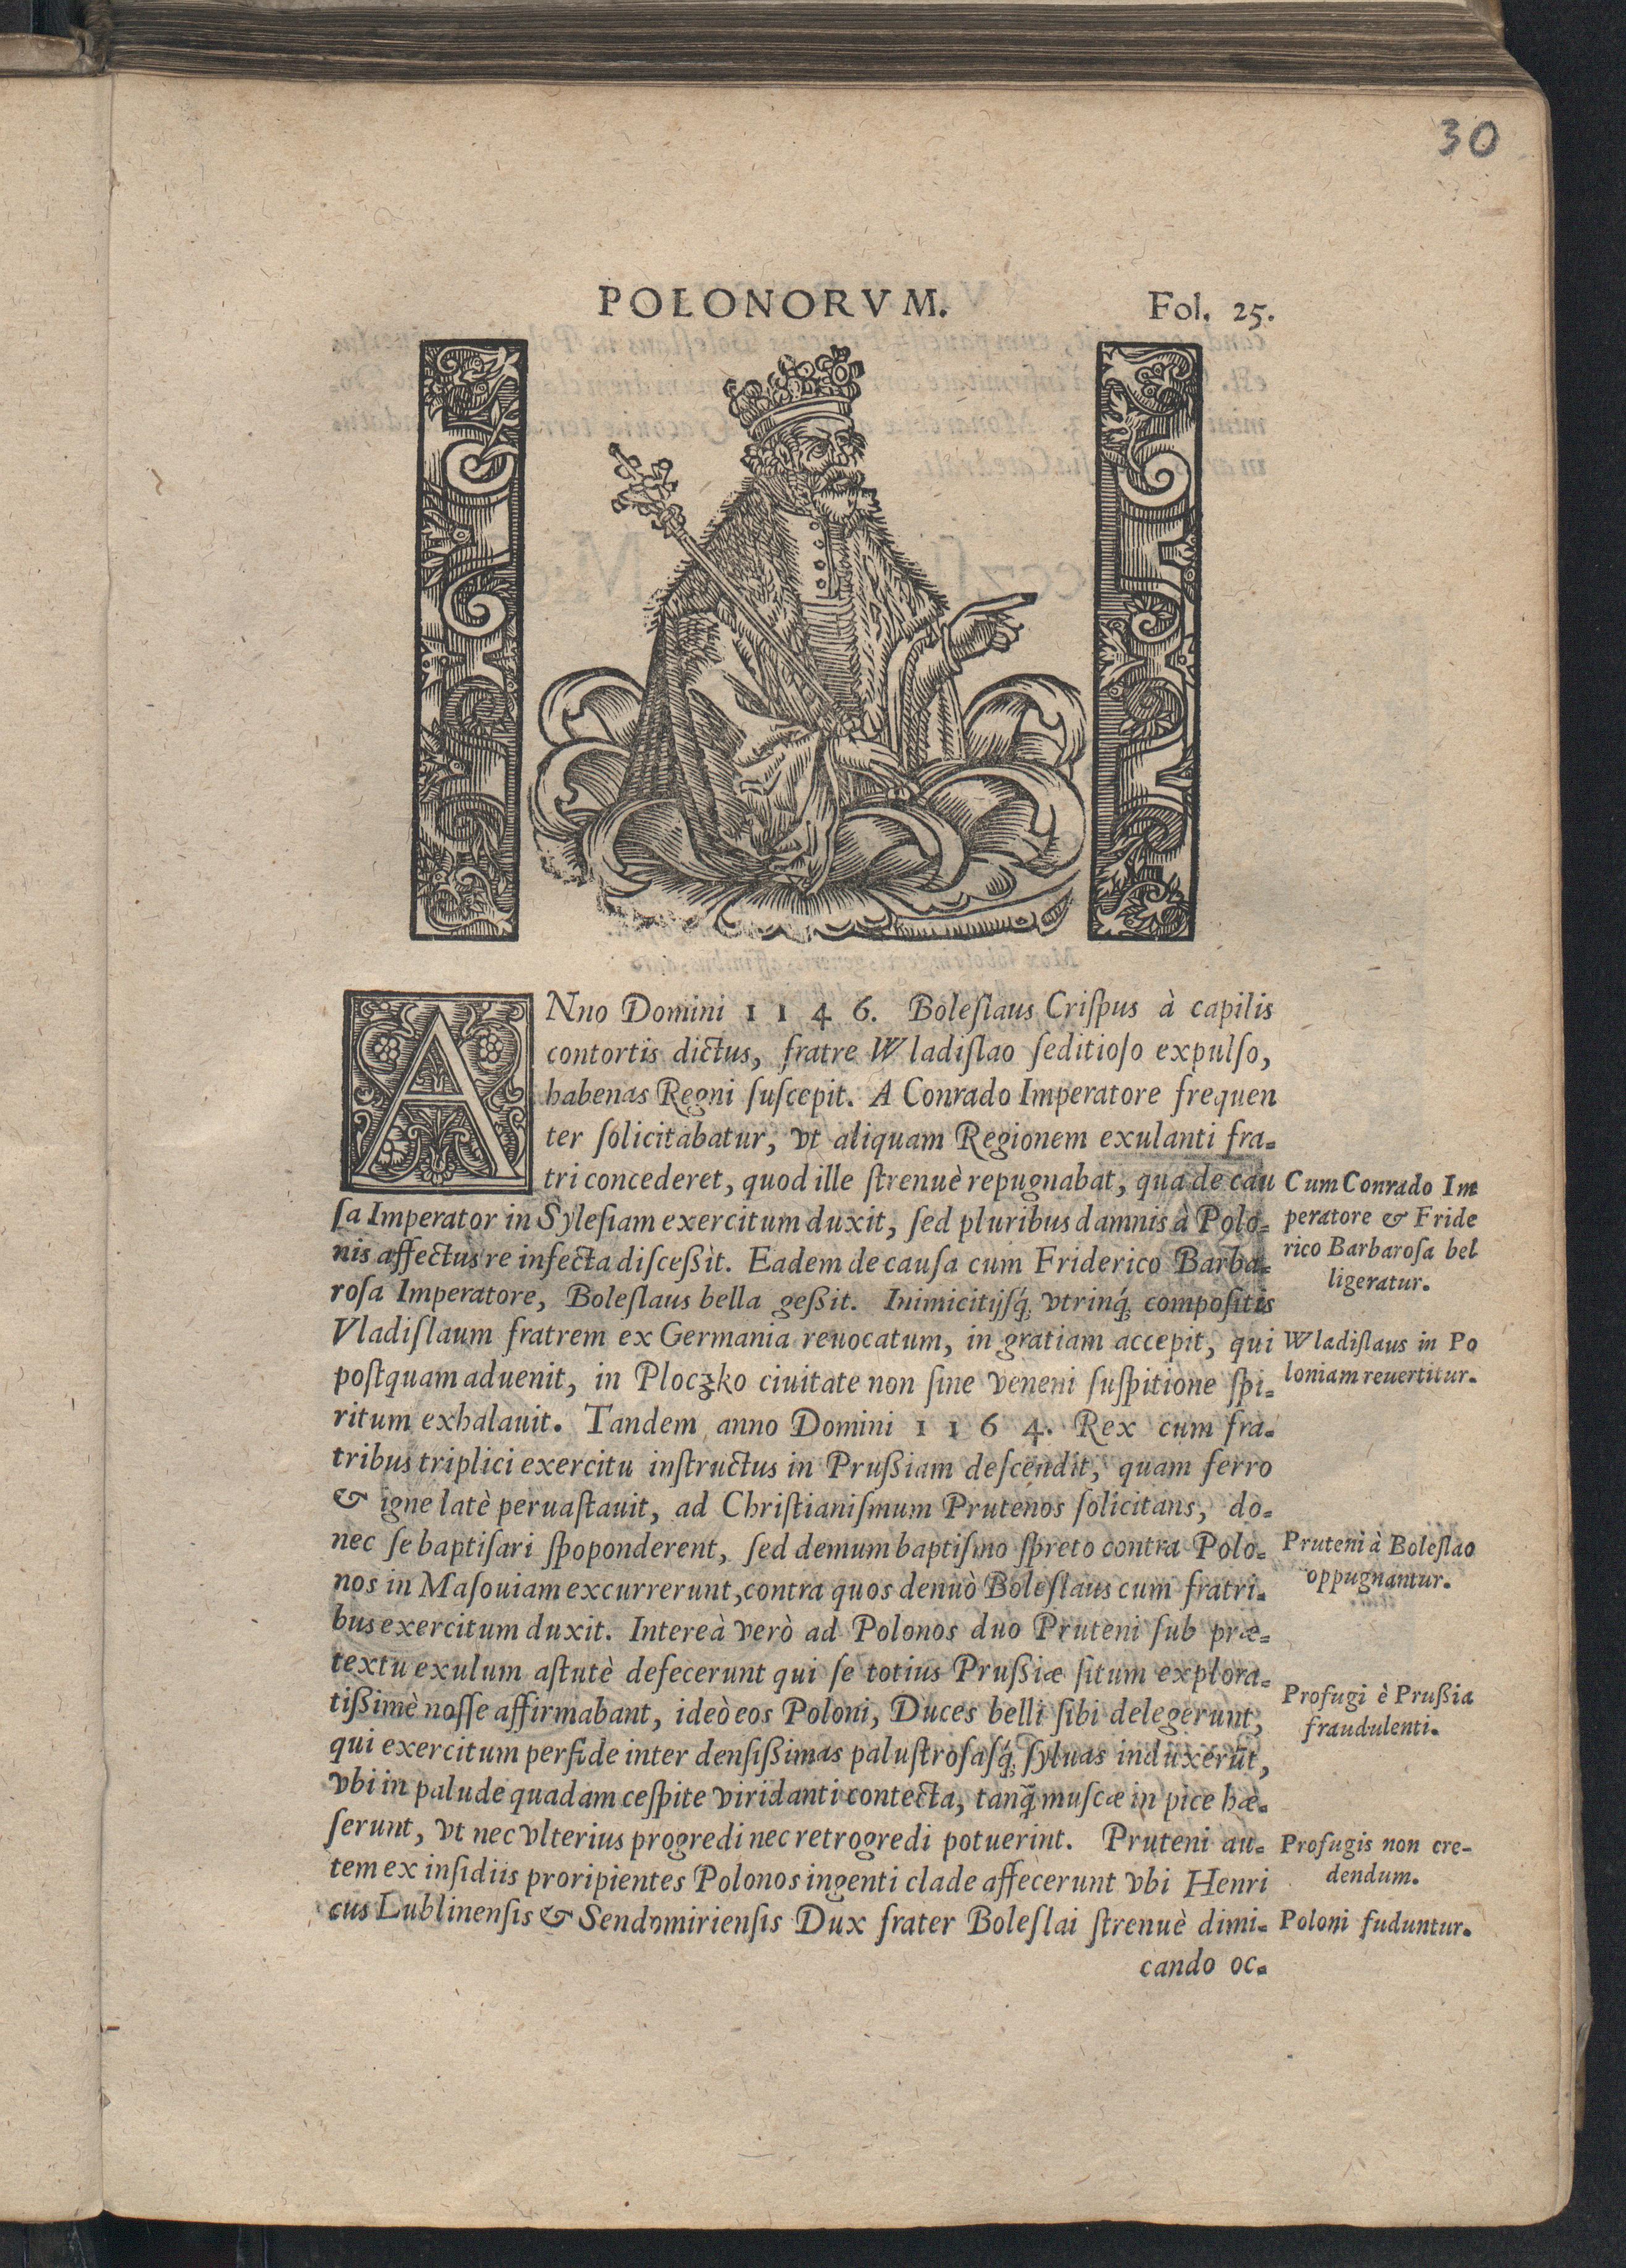 30
POLONORVM. Fol. 25.
ANno Domini 1146. Boleſlaus Criſpus à capilis
contortis dictus, fratre Wladiſlao ſeditioſo expulſo,
habenas Regni ſuſcepit. A Conrado Imperatore frequen
ter ſolicitabatur, vt aliquam Regionem exulanti fra-
tri concederet, quod ille ſtrenuè repugnabat, qua de cau
ſa Imperator in Syleſiam exercitum duxit, ſed pluribus damnis à Polo-
nis affectus re infecta diſceßit. Eadem de cauſa cum Friderico Barba-
roſa Imperatore, Boleſlaus bella geßit. Inimicitijſq́; vtrinq́; compoſitis
Vladiſlaum fratrem ex Germania reuocatum, in gratiam accepit, qui
poſtquam aduenit, in Ploczko ciuitate non ſine veneni ſuſpitione ſpi-
ritum exhalauit. Tandem anno Domini 1164. Rex cum fra-
tribus triplici exercitu inſtructus in Prußiam deſcendit, quam ferro
& igne latè peruaſtauit, ad Chriſtianiſmum Prutenos ſolicitans, do-
nec ſe baptiſari ſpoponderent, ſed demum baptiſmo ſpreto contra Polo-
nos in Maſouiam excurrerunt, contra quos denuò Boleſlaus cum fratri-
bus exercitum duxit. Intereà verò ad Polonos duo Pruteni ſub præ-
textu exulum aſtutè defecerunt qui ſe totius Prußiæ ſitum explora-
tißimè noſſe affirmabant, ideò eos Poloni, Duces belli ſibi delegerunt,
qui exercitum perfide inter denſißimas paluſtroſaſq́; ſyluas induxerūt,
vbi in palude quadam ceſpite viridanti contecta, tanq̃ muſcæ in pice hæ-
ſerunt, vt nec vlterius progredi nec retrogredi potuerint. Pruteni au-
tem ex inſidiis proripientes Polonos ingenti clade affecerunt vbi Henri
cus Lublinenſis & Sendomirienſis Dux frater Boleſlai ſtrenuè dimi-
cando oc-
Cum Conrado Im
peratore & Fride
rico Barbaroſa bel
ligeratur.
Wladiſlaus in Po
loniam reuertitur.
Pruteni à Boleſlao
oppugnantur.
Profugi è Prußia
fraudulenti.
Profugis non cre-
dendum.
Poloni fuduntur.